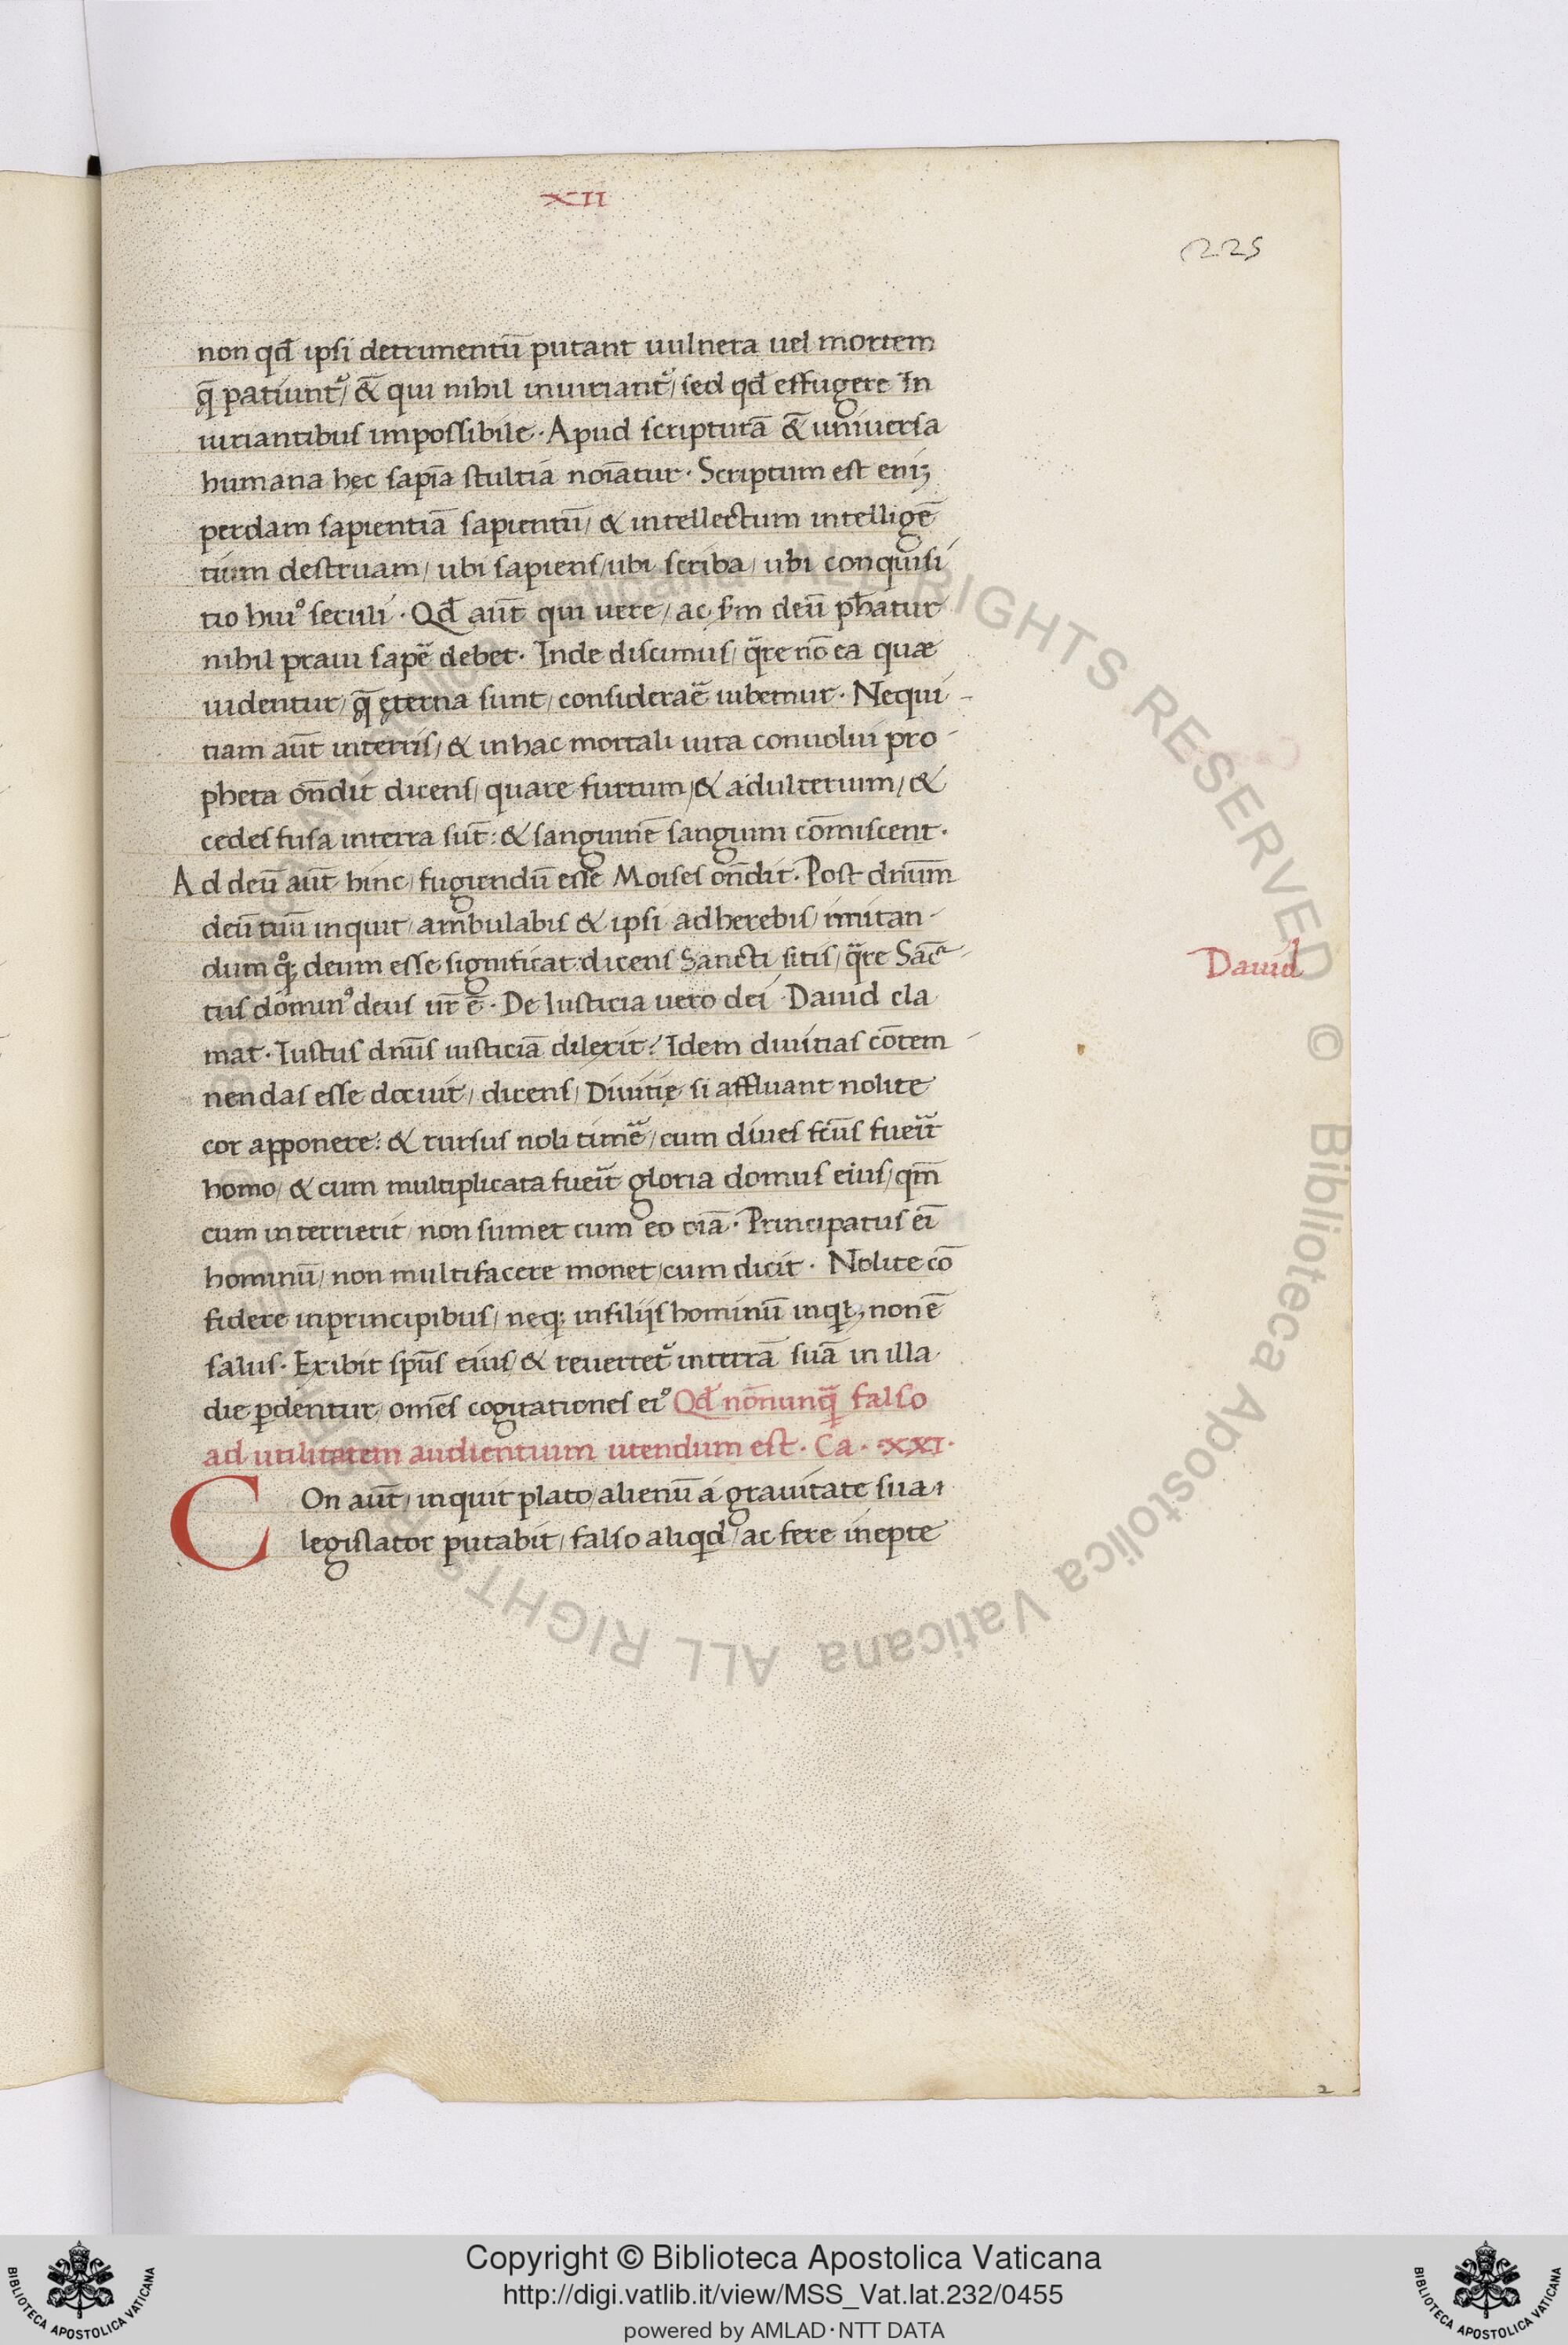 XII
225
non qd̄ ipsi detrimentū putant uulnera uel mortem
q̄ patiunt᷑/ & qui nihil iniuriant᷑/ sed qd̄ effugere In
iuriantibus impossibile· Apud scripturā & uniuersa
humana hęc sapīa stultiā noīatur· Scriptum est eniꝫ
perdam sapientiā sapientū/ & intellectum intelligē
tium destruam/ ubi sapiens/ ubi scriba/ ubi conquisi
tio huiꝰ seculi· Qd̄ aūt qui uere/ ac sm̄ deū ph̄atur
nihil praui sapē debet· Inde discimus/ q̄re nō ea quæ
uidentur/ q̄ ęterna sunt/ considerāe iubemur· Nequi-
tiam aūt in terris/ & in hac mortali uita conuolui pro-
pheta on̄dit dicens/ quare furtum/ & adulterium/ &
cedes fusa in terra sūt: & sanguinē sanguini cōmiscent·
Ad deū aūt hinc/ fugiendū esse Moises on̄dit· Post dn̄um
deū tuū inquit/ ambulabis & ipsi adherebis/ imitan-
dum qꝫ deum esse significat: dicens Sancti sitis/ q̄re Sāc-
tus dominꝰ deus ur̄ ē· De Iusticia uero dei Dauid cla
David
mat· Iustus dn̄us iusticiā dilexit: Idem diuitias cōtem-
nendas esse docuit/ dicens/ Diuitię si affluant nolite
cor apponere: & rursus noli timē/ cum diues fc̄us fueīt
homo/ & cum multiplicata fueīt gloria domus eius/ qm̄
cum interierit/ non sumet cum eo oīa· Principatus eī
hominū/ non multifacere monet/ cum dicit· Nolite cō
fidere in principibus/ neqꝫ in filijs hominū inqt, non ē
salus· Exibit sp̄us eius/ & reuertet᷑ in terrā suā in illa
die ꝑdentur/ om̄es cogitationes eiꝰ Qd̄ nōnunq̄ falso
ad utilitatem audientium utendum est· Ca· ·XXI·
COn aūt/ inquit plato/ alienū á grauitate sua
legislator putabit/ falso aliqd/ ac fere inepte
2
Copyright © Biblioteca Apostolica Vaticana
http://digi.vatlib.it/view/MSS_Vat.lat.232/0455
powered by AMLAD·NTT DATA